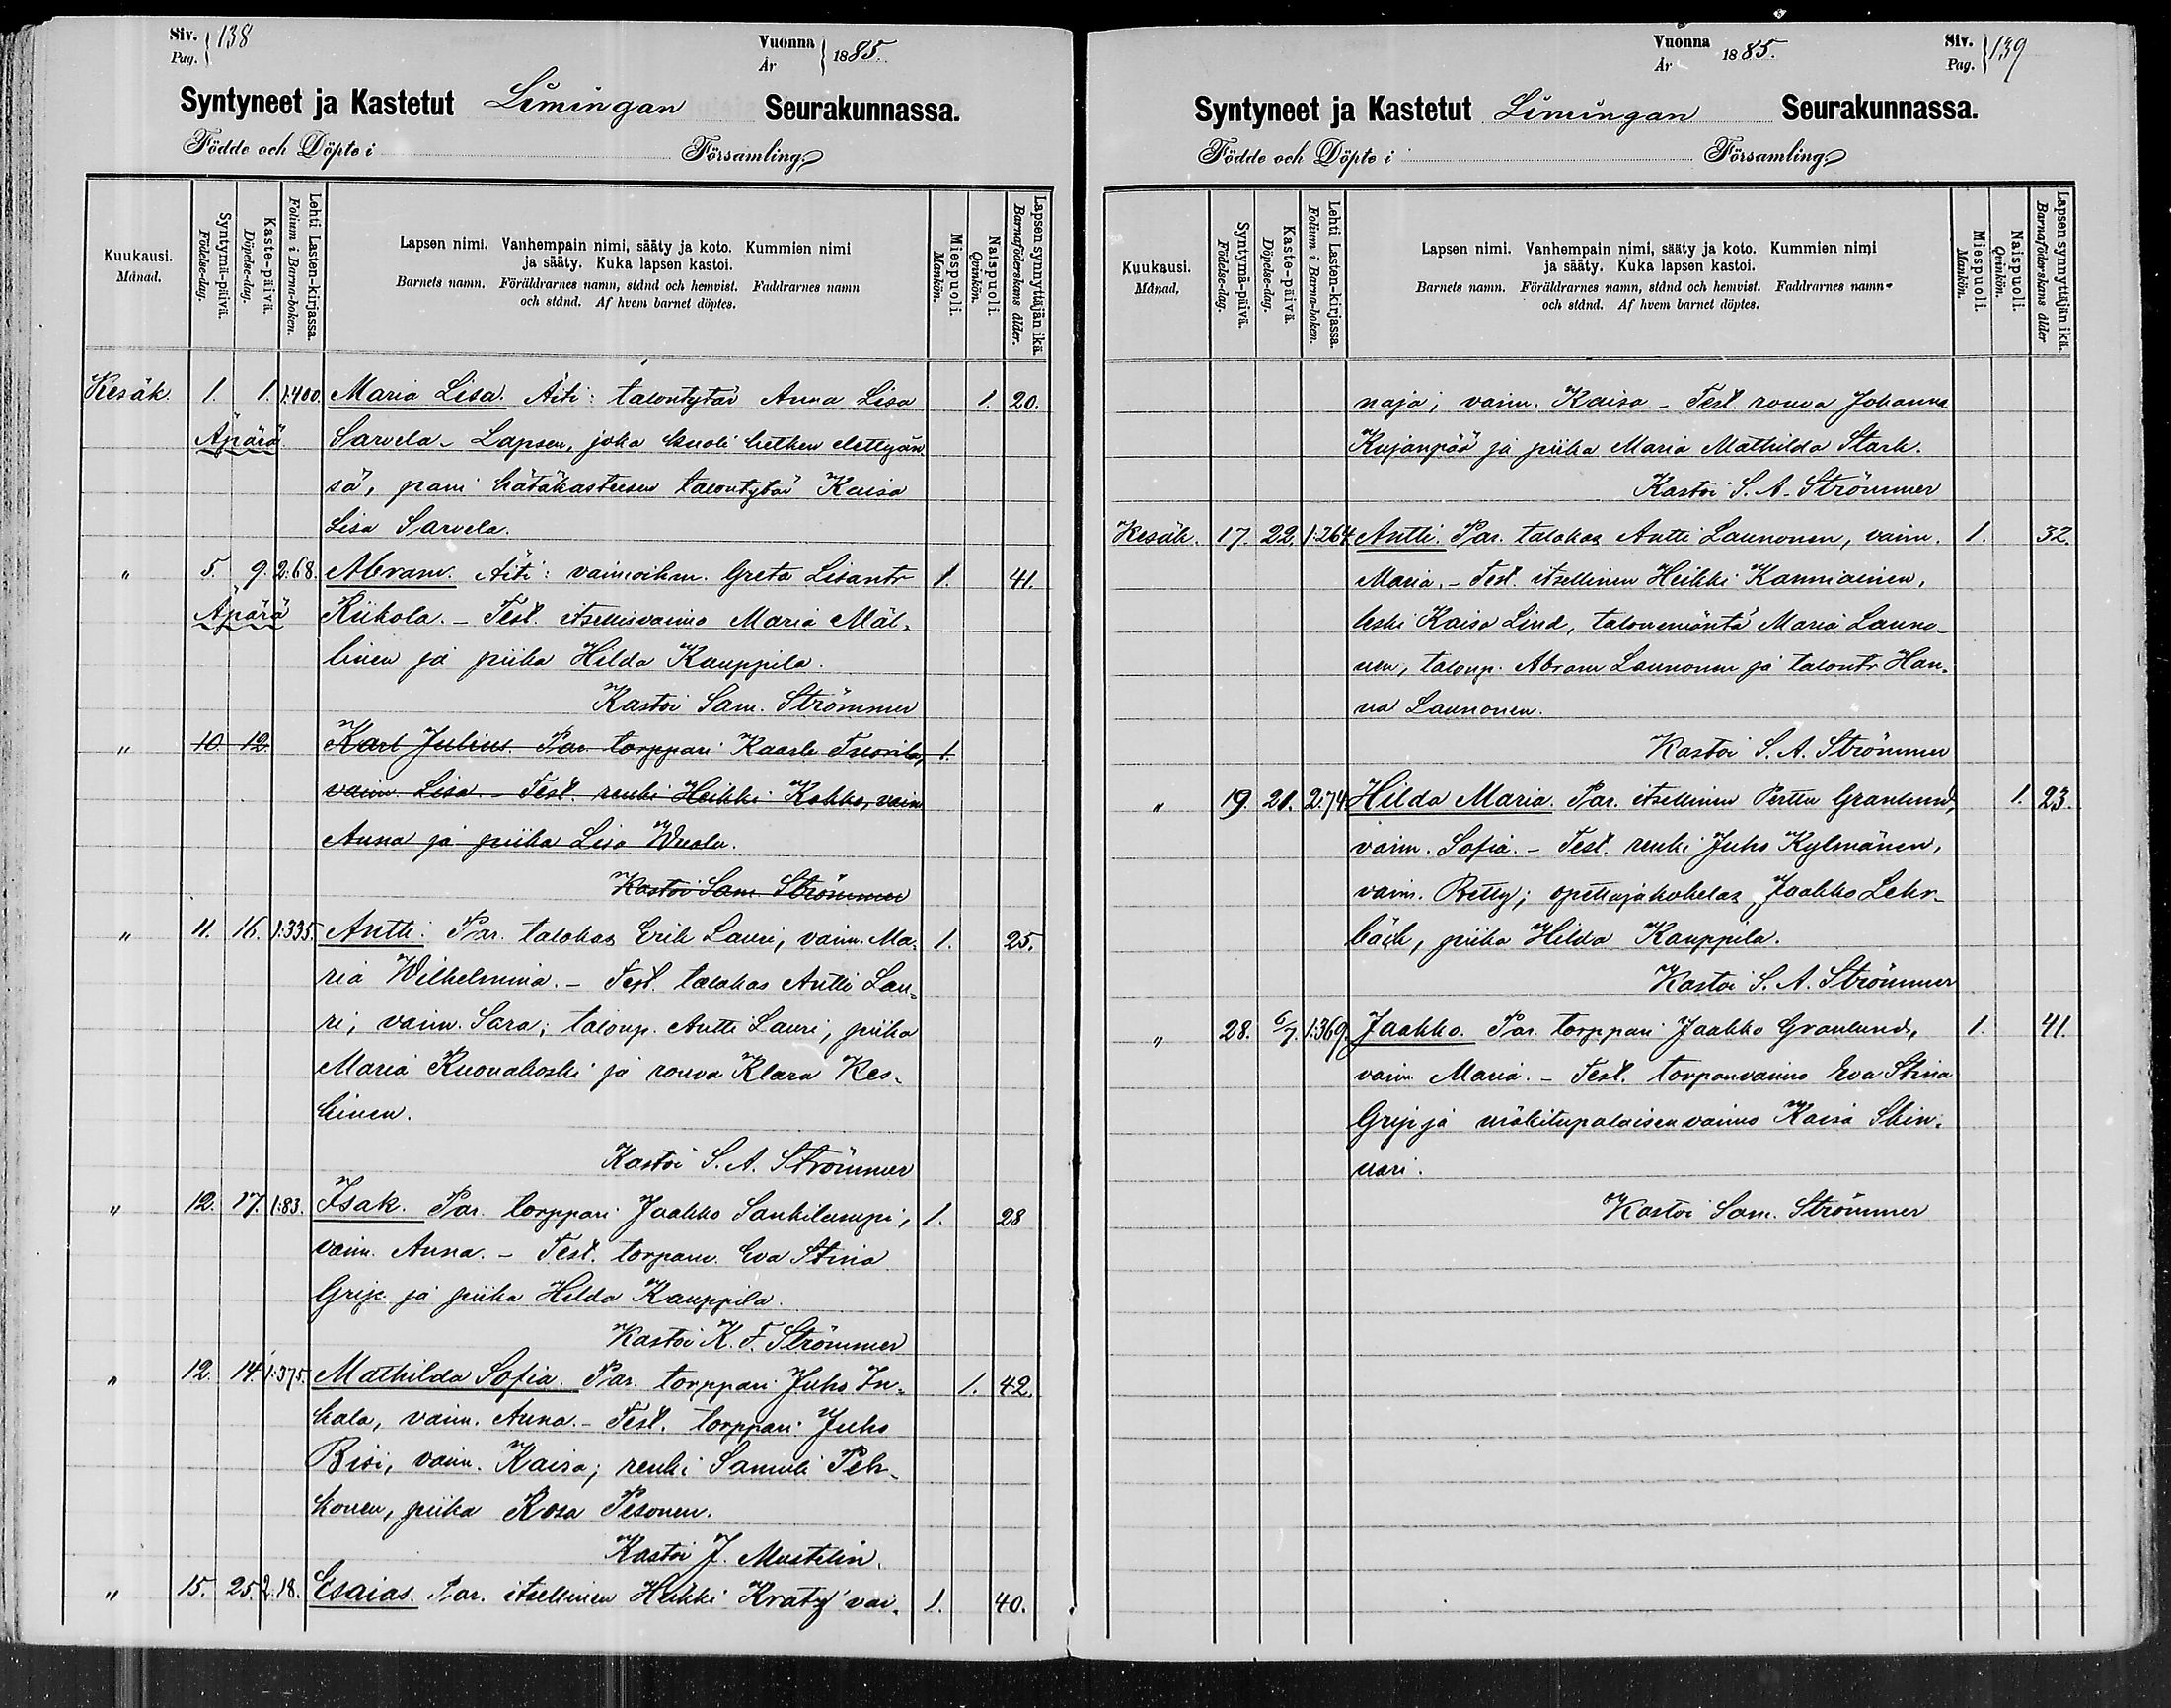 Siv. Pag. 138
Vuonna År 1885.
Syntyneet ja Kastetut Limingan Seurakunnassa.
Födde och Döpte i Församling.
Kuukausi. Månad.
Syntymä-päivä. Födelse-dag.
Kaste-päivä. Döpelse-dag.
Lehti Lasten-kirjassa. Folium i Barna-boken.
Lapsen nimi. Vanhempain nimi, sääty ja koto. Kummien nimi
ja sääty. Kuka lapsen kastoi.
Barnets namn. Föräldrarnes namn, stånd och hemvist. Faddrarnes namn
och stånd. Af hvem barnet döptes.
Miespuoli. Mankön.
Naispuoli. Qvinkön.
Lapsen synnyttäjän ikä. Barnaföderskans ålder.
Kesäk. 1. 1. 1:400. Maria Lisa. Äiti: talontytär Anna Lisa 1. 20.
Äpärä Sarvela. Lapsen, joka kuoli hetken elettyän
sä, pani hätäkasteesen talontytär Kaisa
Lisa Sarvela.
" 5. 9. 2:68. Abram. Äiti: vaimoihm. Greta Lisantr 1. 41.
Äpärä Riikola. - Test. itsellisvaimo Maria Mäl-
linen ja piika Hilda Kauppila.
Kastoi Sam. Strömmer
" 10. 12. Karl Julius. Par. torppari Kaarle Tuorila, 1.
vaim Lisa. - Test. renki Heikki Kokko, vaim
Anna ja piika Lisa Wuolu.
Kastoi Sam Strömmer
" 11. 16. 1:335. Antti. Par. talokas Erik Lauri, vaim. Ma- 1. 25.
ria Wilhelmina. - Test. talokas Antti Lau-
ri, vaim. Sara; taloup. Antti Lauri, piika
Maria Kuonakoski ja rouva Klara Kes-
kinen.
Kastoi S. A. Strömmer
" 12. 17. 1:83. Isak. Par. torppari Jaakko Sankilampi, 1. 28
vaim. Anna. - Test. torpanv. Eva Stina
Grip ja piika Hilda Kauppila.
Kastoi K. F. Strömmer
" 12. 14. 1:375. Mathilda Sofia. Par. torppari Juho In- 1. 42.
kala, vaim. Anna. - Test. torppari Juho
Bisi, vaim. Kaisa; renki Samuli Peh-
konen, piika Rosa Pesonen.
Kastoi J. Mustelin.
" 15. 25. 2:18. Esaias. Par. itsellinen Heikki Kräty vai- 1. 40.
Vuonna År 1885.
Siv. Pag. 139
Syntyneet ja Kastetut Limingan Seurakunnassa.
Födde och Döpte i Församling.
Kuukausi. Månad.
Syntymä-päivä. Födelse-dag.
Kaste-päivä. Döpelse-dag.
Lehti Lasten-kirjassa. Folium i Barna-boken.
Lapsen nimi. Vanhempain nimi, sääty ja koto. Kummien nimi
ja sääty. Kuka lapsen kastoi.
Barnets namn. Föräldrarnes namn, stånd och hemvist. Faddrarnes namn
och stånd. Af hvem barnet döptes.
Miespuoli. Mankön.
Naispuoli. Qvinkön.
Lapsen synnyttäjän ikä. Barnaföderskans ålder
naja, vaim. Kaisa. - Test. rouva Johanna
Kujanpää ja piika Maria Mathilda Stark.
Kastoi S. A. Strömmer
Kesäk. 17. 22. 1:264 Antti. Par. talokas Antti Launonen, vaim. 1. 32.
Maria. - Test. itsellinen Heikki Kanniainen,
leski Kaisa Lind, talonemäntä Maria Launo-
nen, taloup. Abram Launonen ja talontr Han-
na Launonen.
Kastoi S. A. Strömmer
" 19. 21. 2:74 Hilda Maria. Par. itsellinen Perttu Granlund, 1. 23.
vaim. Sofia. - Test. renki Juho Kylmänen,
vaim. Betty; opettajakokelas Jaakko Lehr-
bäck, piika Hilda Kauppila.
Kastoi S. A. Strömmer
" 28. 6/7. 1:369. Jaakko. Par. torppari Jaakko Granlund, 1. 41.
vaim Maria. - Test. torpanvaimo Eva Stina
Grip ja mäkitupalaisen vaimo Kaisa Skin-
nari.
Kastoi Sam. Strömmer